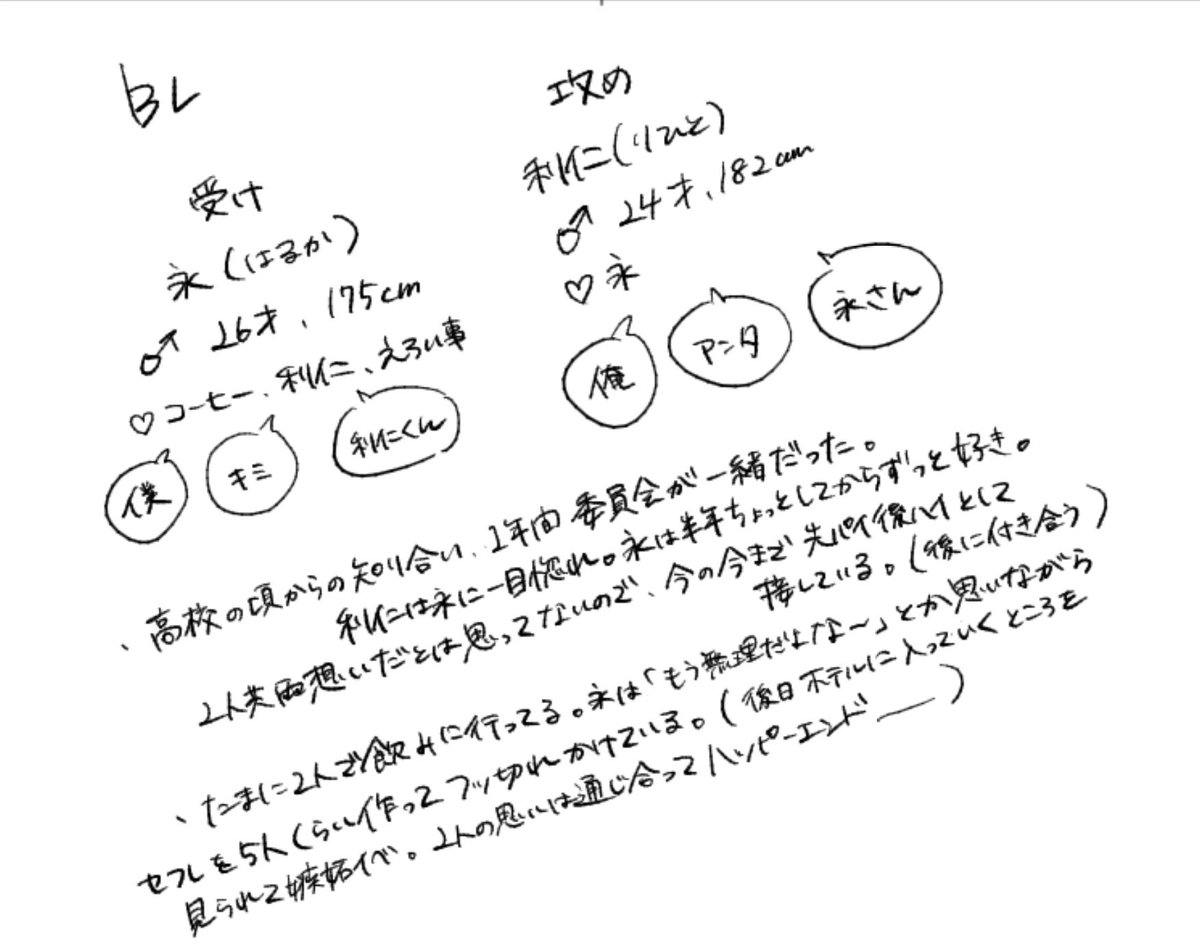 BL
受け
永(はるか)
♂ 26才、175cm
♡コーヒー、利仁、えろい事
僕
キミ
利仁くん
攻め
利仁(りひと)
♂ 24才、182cm
♡永
俺
アンタ
永さん
、高校の頃からの知り合い、1年間委員会が一緒だった。
利仁は永に一目惚れ。永は半年ちょっとしてからずっと好き。
2人共両想いだとは思ってないので、今の今まで先パイ後ハイとして
接している。(後に付き合う)
、たまに2人で飲みに行ってる。永は「もう無理だよな〜」とか思いながら
セフレを5人くらい作ってフッ切れかけている。(後日ホテルに入っていくところを
見られて嫉妬イベ。2人の思いは通じ合ってハッピーエンドー)